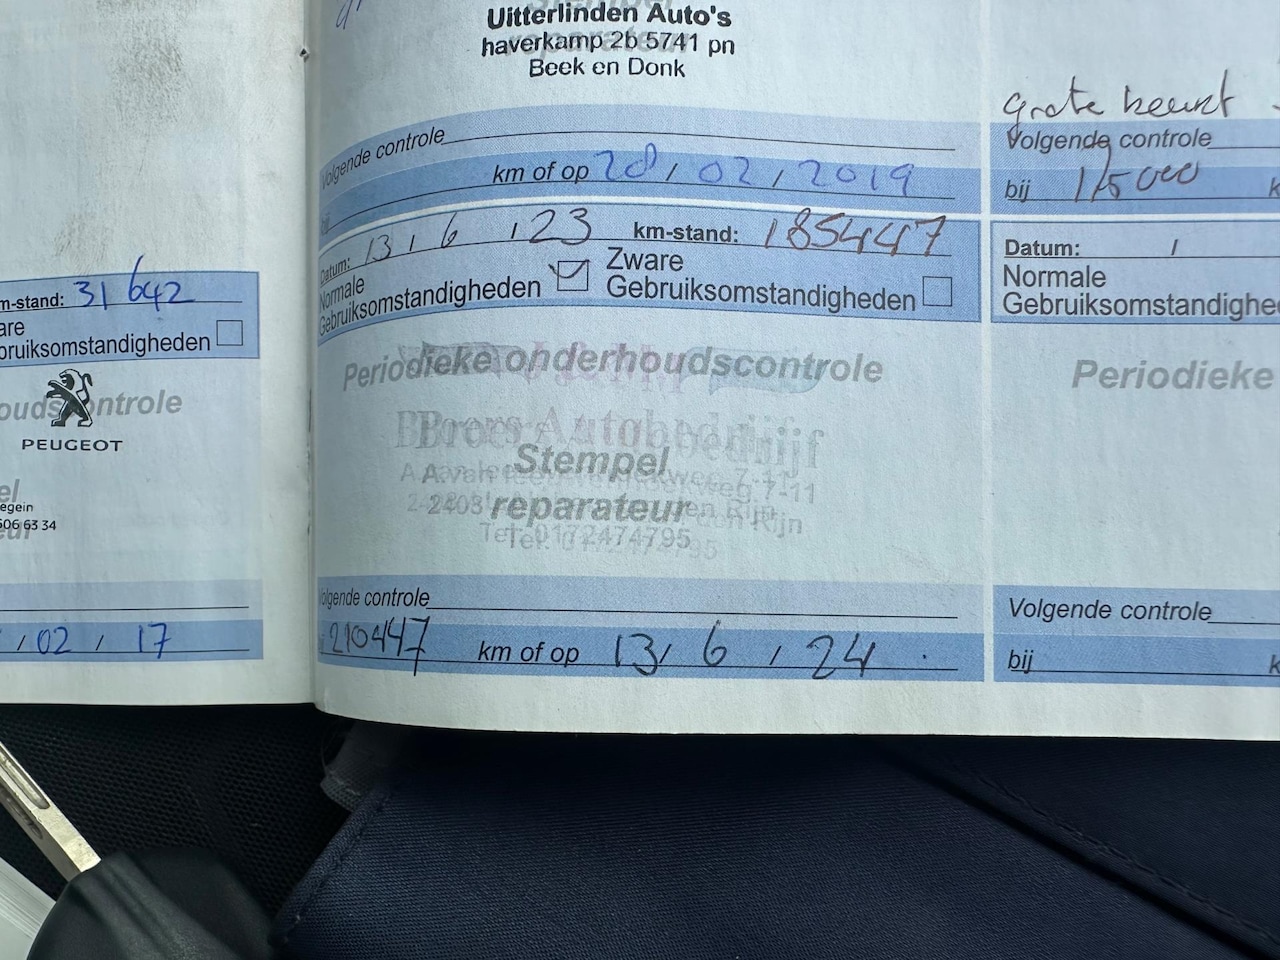 m-stand: 31 642
are
bruiksomstandigheden
ouds ontrole
PEUGEOT
el
egein
506 63 34
eur
/ 02 / 17
Uitterlinden Auto's
haverkamp 2b 5741 pn
Beek en Donk
Volgende controle
km of op 28 / 02 / 2019
Datum: 13 / 6 / 23 km-stand: 185447
Normale
Gebruiksomstandigheden
Zware
Gebruiksomstandigheden
Periodieke onderhoudscontrole
Broers Autobedrijf
Stempel
A. van Leeuwenhoekweg 7-11
2408
reparateur
den Rijn
Tel. 0172474795
Volgende controle
210447 km of op 13 / 6 / 24
Grote beurt
Volgende controle
bij 115000 k
Datum: /
Normale
Gebruiksomstandighe
Periodieke
Volgende controle
bij k